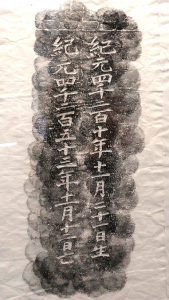 紀元四千二百十年十一月二十一日生
紀元四千二百五十三年十一月十二日亡